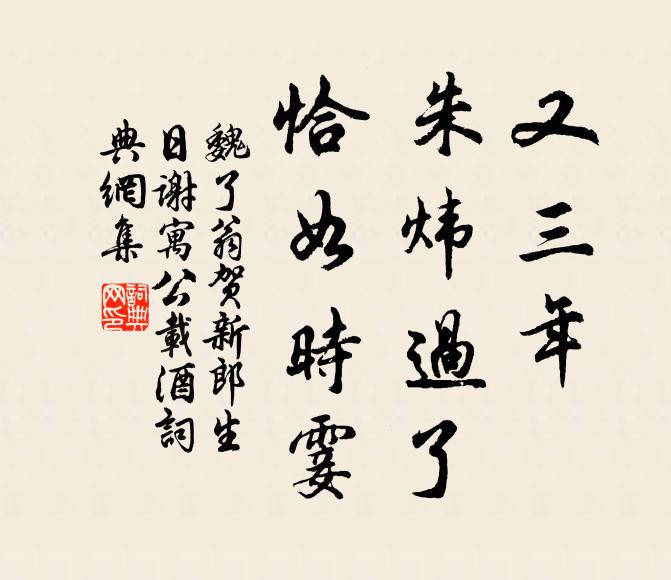 又三年
朱炜過了
恰如時霎
魏了翁賀新郎生
日謝寓公載酒詞
典網集
詞典
网印